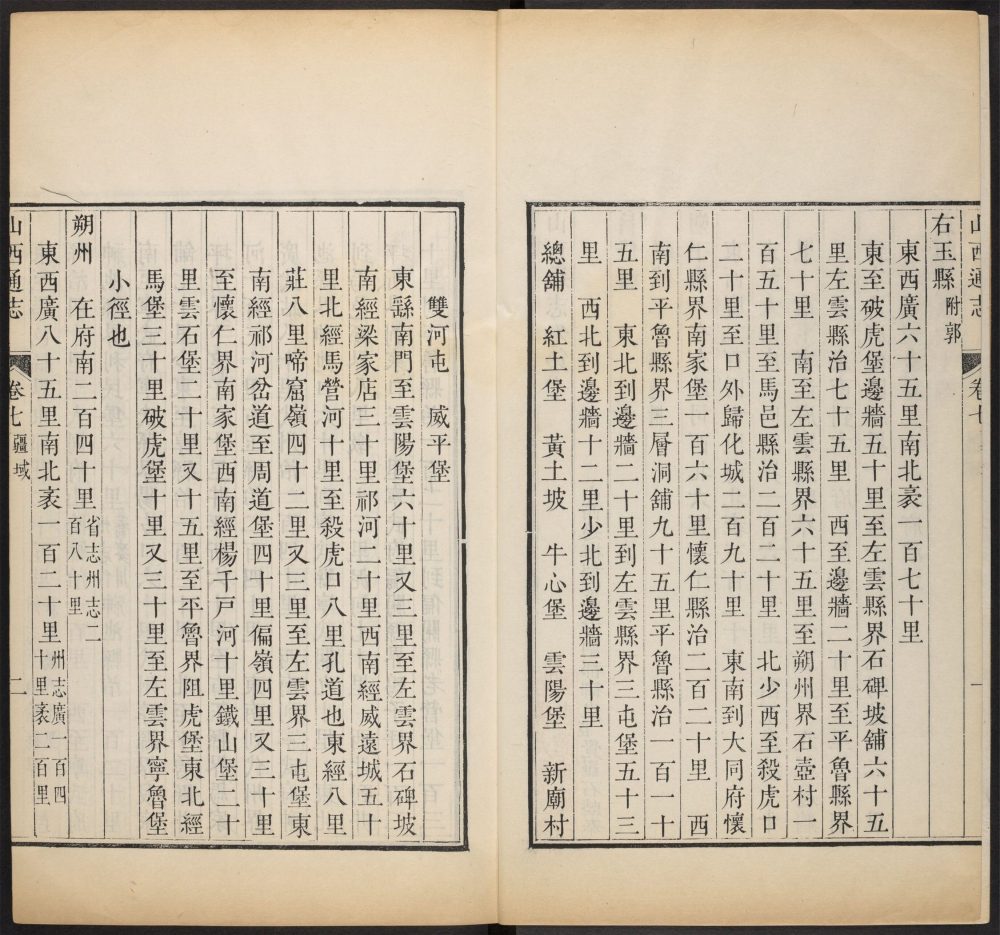 山西通志 卷七 一
右玉縣 附郭
東西廣六十五里南北袤一百七十里
東至破虎堡邊牆五十里至左雲縣界石碑坡舖六十五
里左雲縣治七十五里 西至邊牆二十里至平魯縣界
七十里 南至左雲縣界六十五里至朔州界石壺村一
百五十里至馬邑縣治二百二十里 北少西至殺虎口
二十里至口外歸化城二百九十里 東南到大同府懷
仁縣界南家堡一百六十里懷仁縣治二百二十里 西
南到平魯縣界三層洞舖九十五里平魯縣治一百一十
五里 東北到邊牆二十里到左雲縣界三屯堡五十三
里 西北到邊牆十二里少北到邊牆三十里
總舖 紅土堡 黃土坡 牛心堡 雲陽堡 新廟村
雙河屯 威平堡
東繇南門至雲陽堡六十里又三里至左雲界石碑坡
南經梁家店三十里祁河二十里西南經威遠城五十
里北經馬營河十里至殺虎口八里孔道也東經八里
莊八里啼窟嶺四十二里又三里至左雲界三屯堡東
南經祁河岔道至周道堡四十里偏嶺四里又三十里
至懷仁界南家堡西南經楊千戸河十里鐵山堡二十
里雲石堡二十里又十五里至平魯界阻虎堡東北經
馬堡三十里破虎堡十里又三十里至左雲界寧魯堡
小徑也
朔州 在府南二百四十里 省志州志二
百八十里
東西廣八十五里南北袤一百二十里 州志廣一百四
十里袤二百里
山西通志 卷七 疆域 二